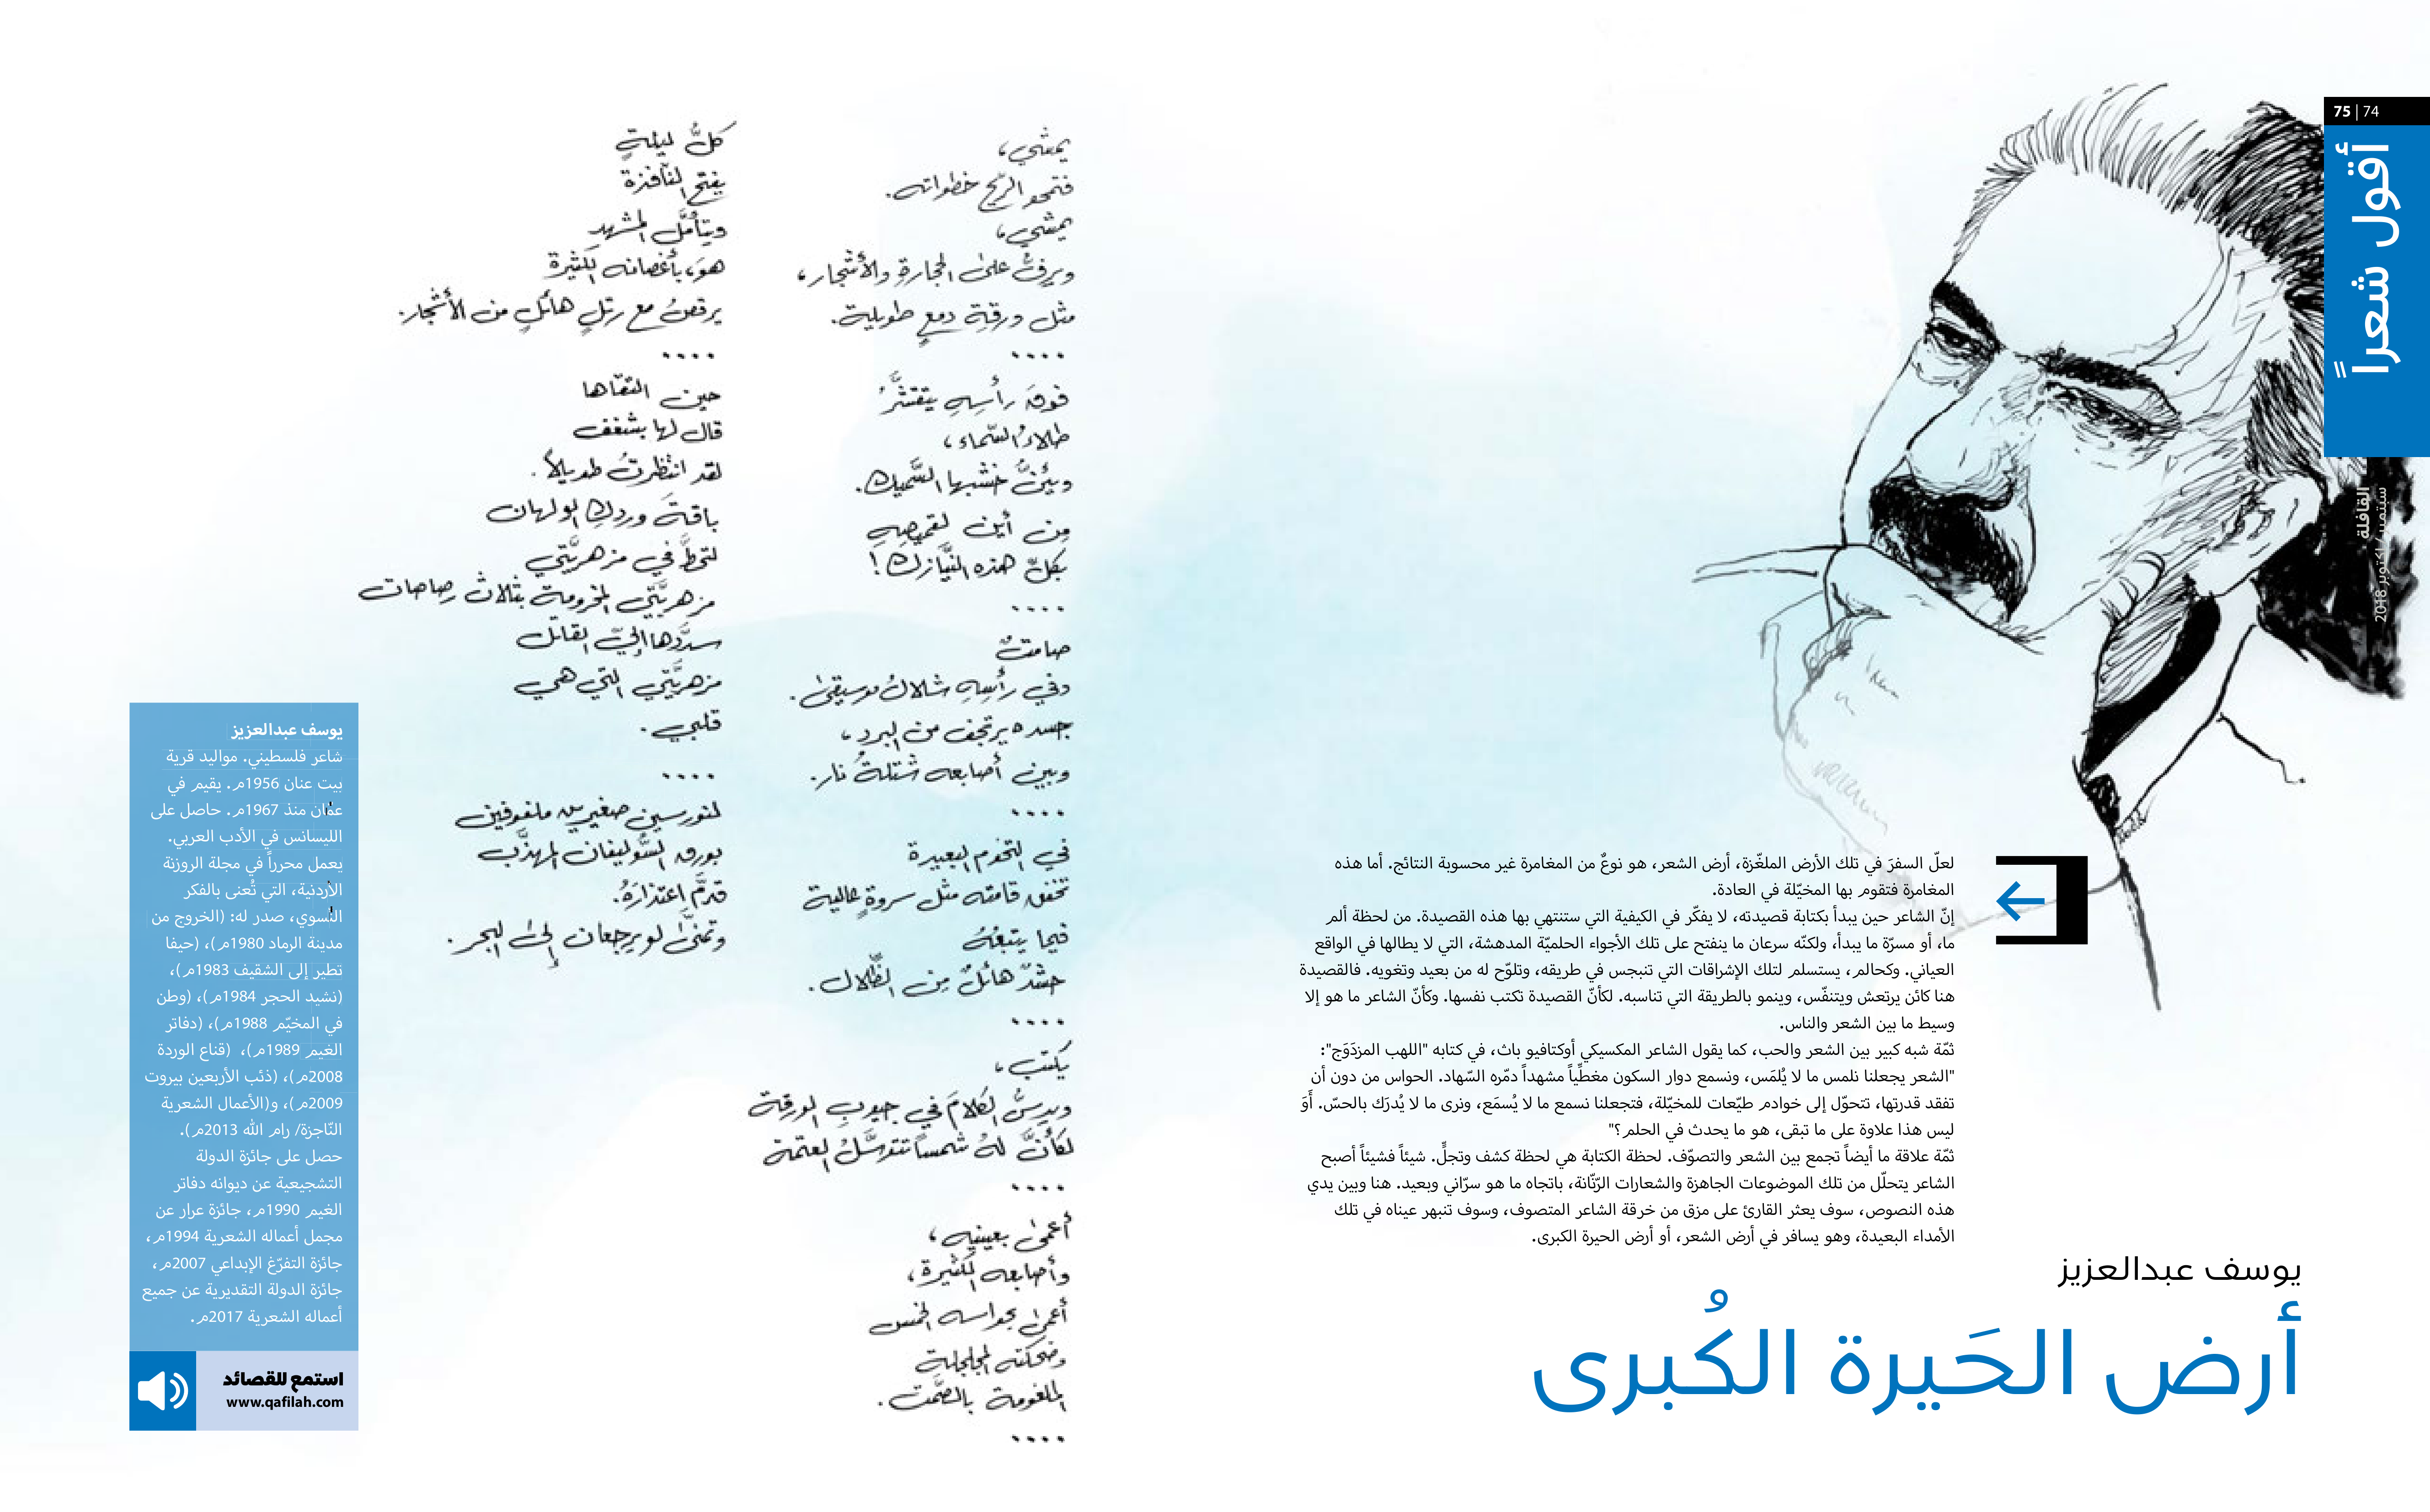 75 | 74
أقول شعراً
القافلة
سبتمبر / أكتوبر 2018
لعلّ السفرَ في تلك الأرض الملغّزة، أرض الشعر، هو نوعٌ من المغامرة غير محسوبة النتائج. أما هذه
المغامرة فتقوم بها المخيّلة في العادة.
إنّ الشاعر حين يبدأ بكتابة قصيدته، لا يفكّر في الكيفية التي ستنتهي بها هذه القصيدة. من لحظة ألم
ما، أو مسرّة ما يبدأ، ولكنّه سرعان ما ينفتح على تلك الأجواء الحلميّة المدهشة، التي لا يطالها في الواقع
العياني. وكحالم، يستسلم لتلك الإشراقات التي تنبجس في طريقه، وتلوّح له من بعيد وتغويه. فالقصيدة
هنا كائن يرتعش ويتنفّس، وينمو بالطريقة التي تناسبه. لكأنّ القصيدة تكتب نفسها. وكأنّ الشاعر ما هو إلا
وسيط ما بين الشعر والناس.
ثمّة شبه كبير بين الشعر والحب، كما يقول الشاعر المكسيكي أوكتافيو باث، في كتابه "اللهب المزدَوَج":
"الشعر يجعلنا نلمس ما لا يُلمَس، ونسمع دوار السكون مغطِّياً مشهداً دمّره السّهاد. الحواس من دون أن
تفقد قدرتها، تتحوّل إلى خوادم طيّعات للمخيّلة، فتجعلنا نسمع ما لا يُسمَع، ونرى ما لا يُدرَك بالحسّ. أَوَ
ليس هذا علاوة على ما تبقى، هو ما يحدث في الحلم؟"
ثمّة علاقة ما أيضاً تجمع بين الشعر والتصوّف. لحظة الكتابة هي لحظة كشف وتجلٍّ. شيئاً فشيئاً أصبح
الشاعر يتحلّل من تلك الموضوعات الجاهزة والشعارات الرّنّانة، باتجاه ما هو سرّاني وبعيد. هنا وبين يدي
هذه النصوص، سوف يعثر القارئ على مزق من خرقة الشاعر المتصوف، وسوف تنبهر عيناه في تلك
الأمداء البعيدة، وهو يسافر في أرض الشعر، أو أرض الحيرة الكبرى.
يوسف عبدالعزيز
أرض الحَيرة الكُبرى
يمشي،
فتمحو الرّيح خطواته.
يمشي،
ويرفُّ على الحجارةِ والأشجار،
مثل ورقةِ دمعٍ طويلة.
....
فوقَ رأسِهِ يتقشَّرُ
طلاءُ السّماء،
ويئنُّ خشبها السَّميك.
مِن أين لقميصِهِ
بكلِّ هذه النَّيازك!
....
صامتٌ
وفي رأسِهِ شلالُ موسيقىٰ.
جسده يرتجف من البرد،
وبين أصابعه شتلةُ نار.
....
في التخوم البعيدة
تخفق قامته مثل سروةٍ عالية
فيما يتبعُهُ
حشدٌ هائلٌ مِن الظِّلال.
....
يكتب،
ويدسُّ الكلامَ في جيوبِ الورقة
لكأنَّ لهُ شمساً تتوسَّلُ العتمة
....
أعمىٰ بعينيه،
وأصابعه الكثيرة،
أعمىٰ بحواسه الخمس
وضحكته المجلجلةِ
الملغومة بالصَّمت.
....
كلَّ ليلةٍ
يفتح النّافذة
ويتأمَّل المشهد
هوَ، بأغصانه الكثيرة
يرقصُ مع رتلٍ هائلٍ من الأشجار.
....
حين التقاها
قال لها بشغف
لقد انتظرتُ طويلاً.
باقةَ وردكِ الولهان
لتحطَّ في مزهريَّتي
مزهريَّتي المخرومة بثلاث رصاصات
سدَّدها إليّ القاتل
مزهريَّتي التي هي
قلبي.
....
لنورسين صغيرين ملفوفين
بورق السّوليفان المهذَّب
قدَّم اعتذارَهُ.
وتمنّىٰ لو يرجعان إلىٰ البحر.
يوسف عبدالعزيز
شاعر فلسطيني. مواليد قرية
بيت عنان 1956م. يقيم في
عمّان منذ 1967م. حاصل على
الليسانس في الأدب العربي.
يعمل محرراً في مجلة الروزنة
الأردنية، التي تُعنى بالفكر
النسوي، صدر له: (الخروج من
مدينة الرماد 1980م)، (حيفا
تطير إلى الشقيف 1983م)،
(نشيد الحجر 1984م)، (وطن
في المخيّم 1988م)، (دفاتر
الغيم 1989م)، (قناع الوردة
2008م)، (ذئب الأربعين بيروت
2009م)، و(الأعمال الشعرية
النّاجزة/ رام الله 2013م).
حصل على جائزة الدولة
التشجيعية عن ديوانه دفاتر
الغيم 1990م، جائزة عرار عن
مجمل أعماله الشعرية 1994م،
جائزة التفرّغ الإبداعي 2007م،
جائزة الدولة التقديرية عن جميع
أعماله الشعرية 2017م.
استمع للقصائد
www.qafilah.com